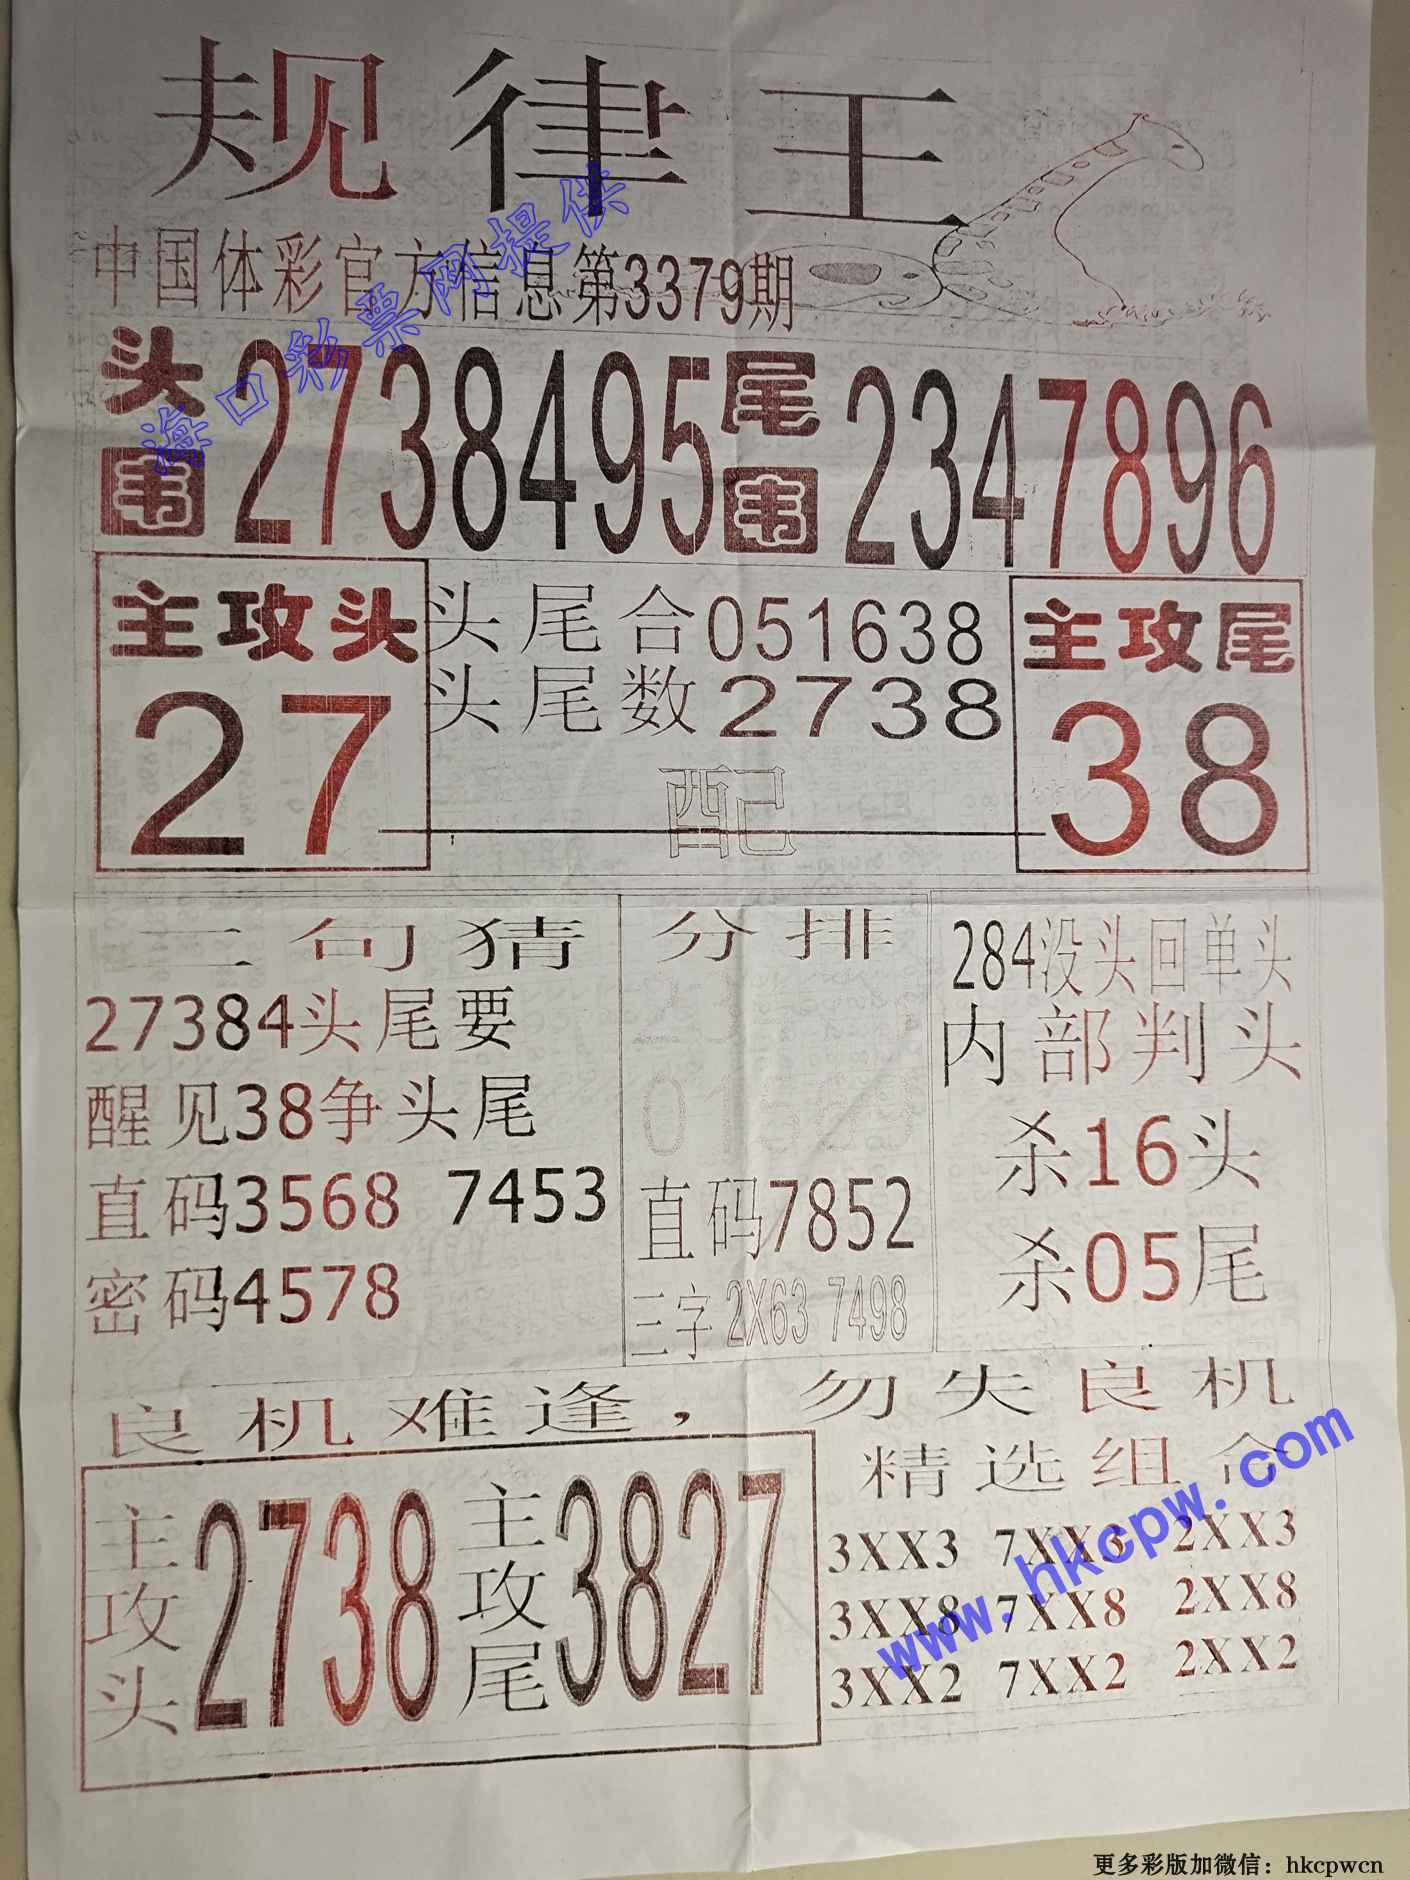 规律王
中国体彩官方信息第3379期
海口彩票网提供
头围 2738495 尾围 2347896
主攻头 27
头尾合051638
头尾数2738
主攻尾 38
配
三句猜
27384头尾要
醒见38争头尾
直码3568 7453
密码4578
分排
直码7852
三字 2X63 7498
284没头回单头
内部判头
杀16头
杀05尾
良机难逢，勿失良机
主攻头 2738 主攻尾 3827
精选组合
3XX3 7XX3 2XX3
3XX8 7XX8 2XX8
3XX2 7XX2 2XX2
www.hkcpw.com
更多彩版加微信：hkcpwcn